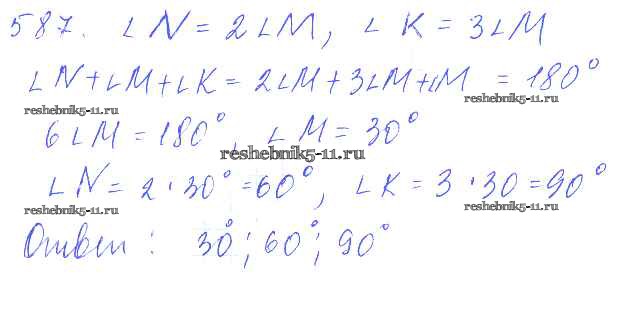 587. ∠N = 2∠M, ∠K = 3∠M
∠N+∠M+∠K = 2∠M+3∠M+∠M = 180°
reshebnik5-11.ru reshebnik5-11.ru
6∠M = 180°, ∠M = 30°
reshebnik5-11.ru
∠N = 2·30° = 60°, ∠K = 3·30 = 90°
reshebnik5-11.ru reshebnik5-11.ru
Ответ: 30°; 60°; 90°